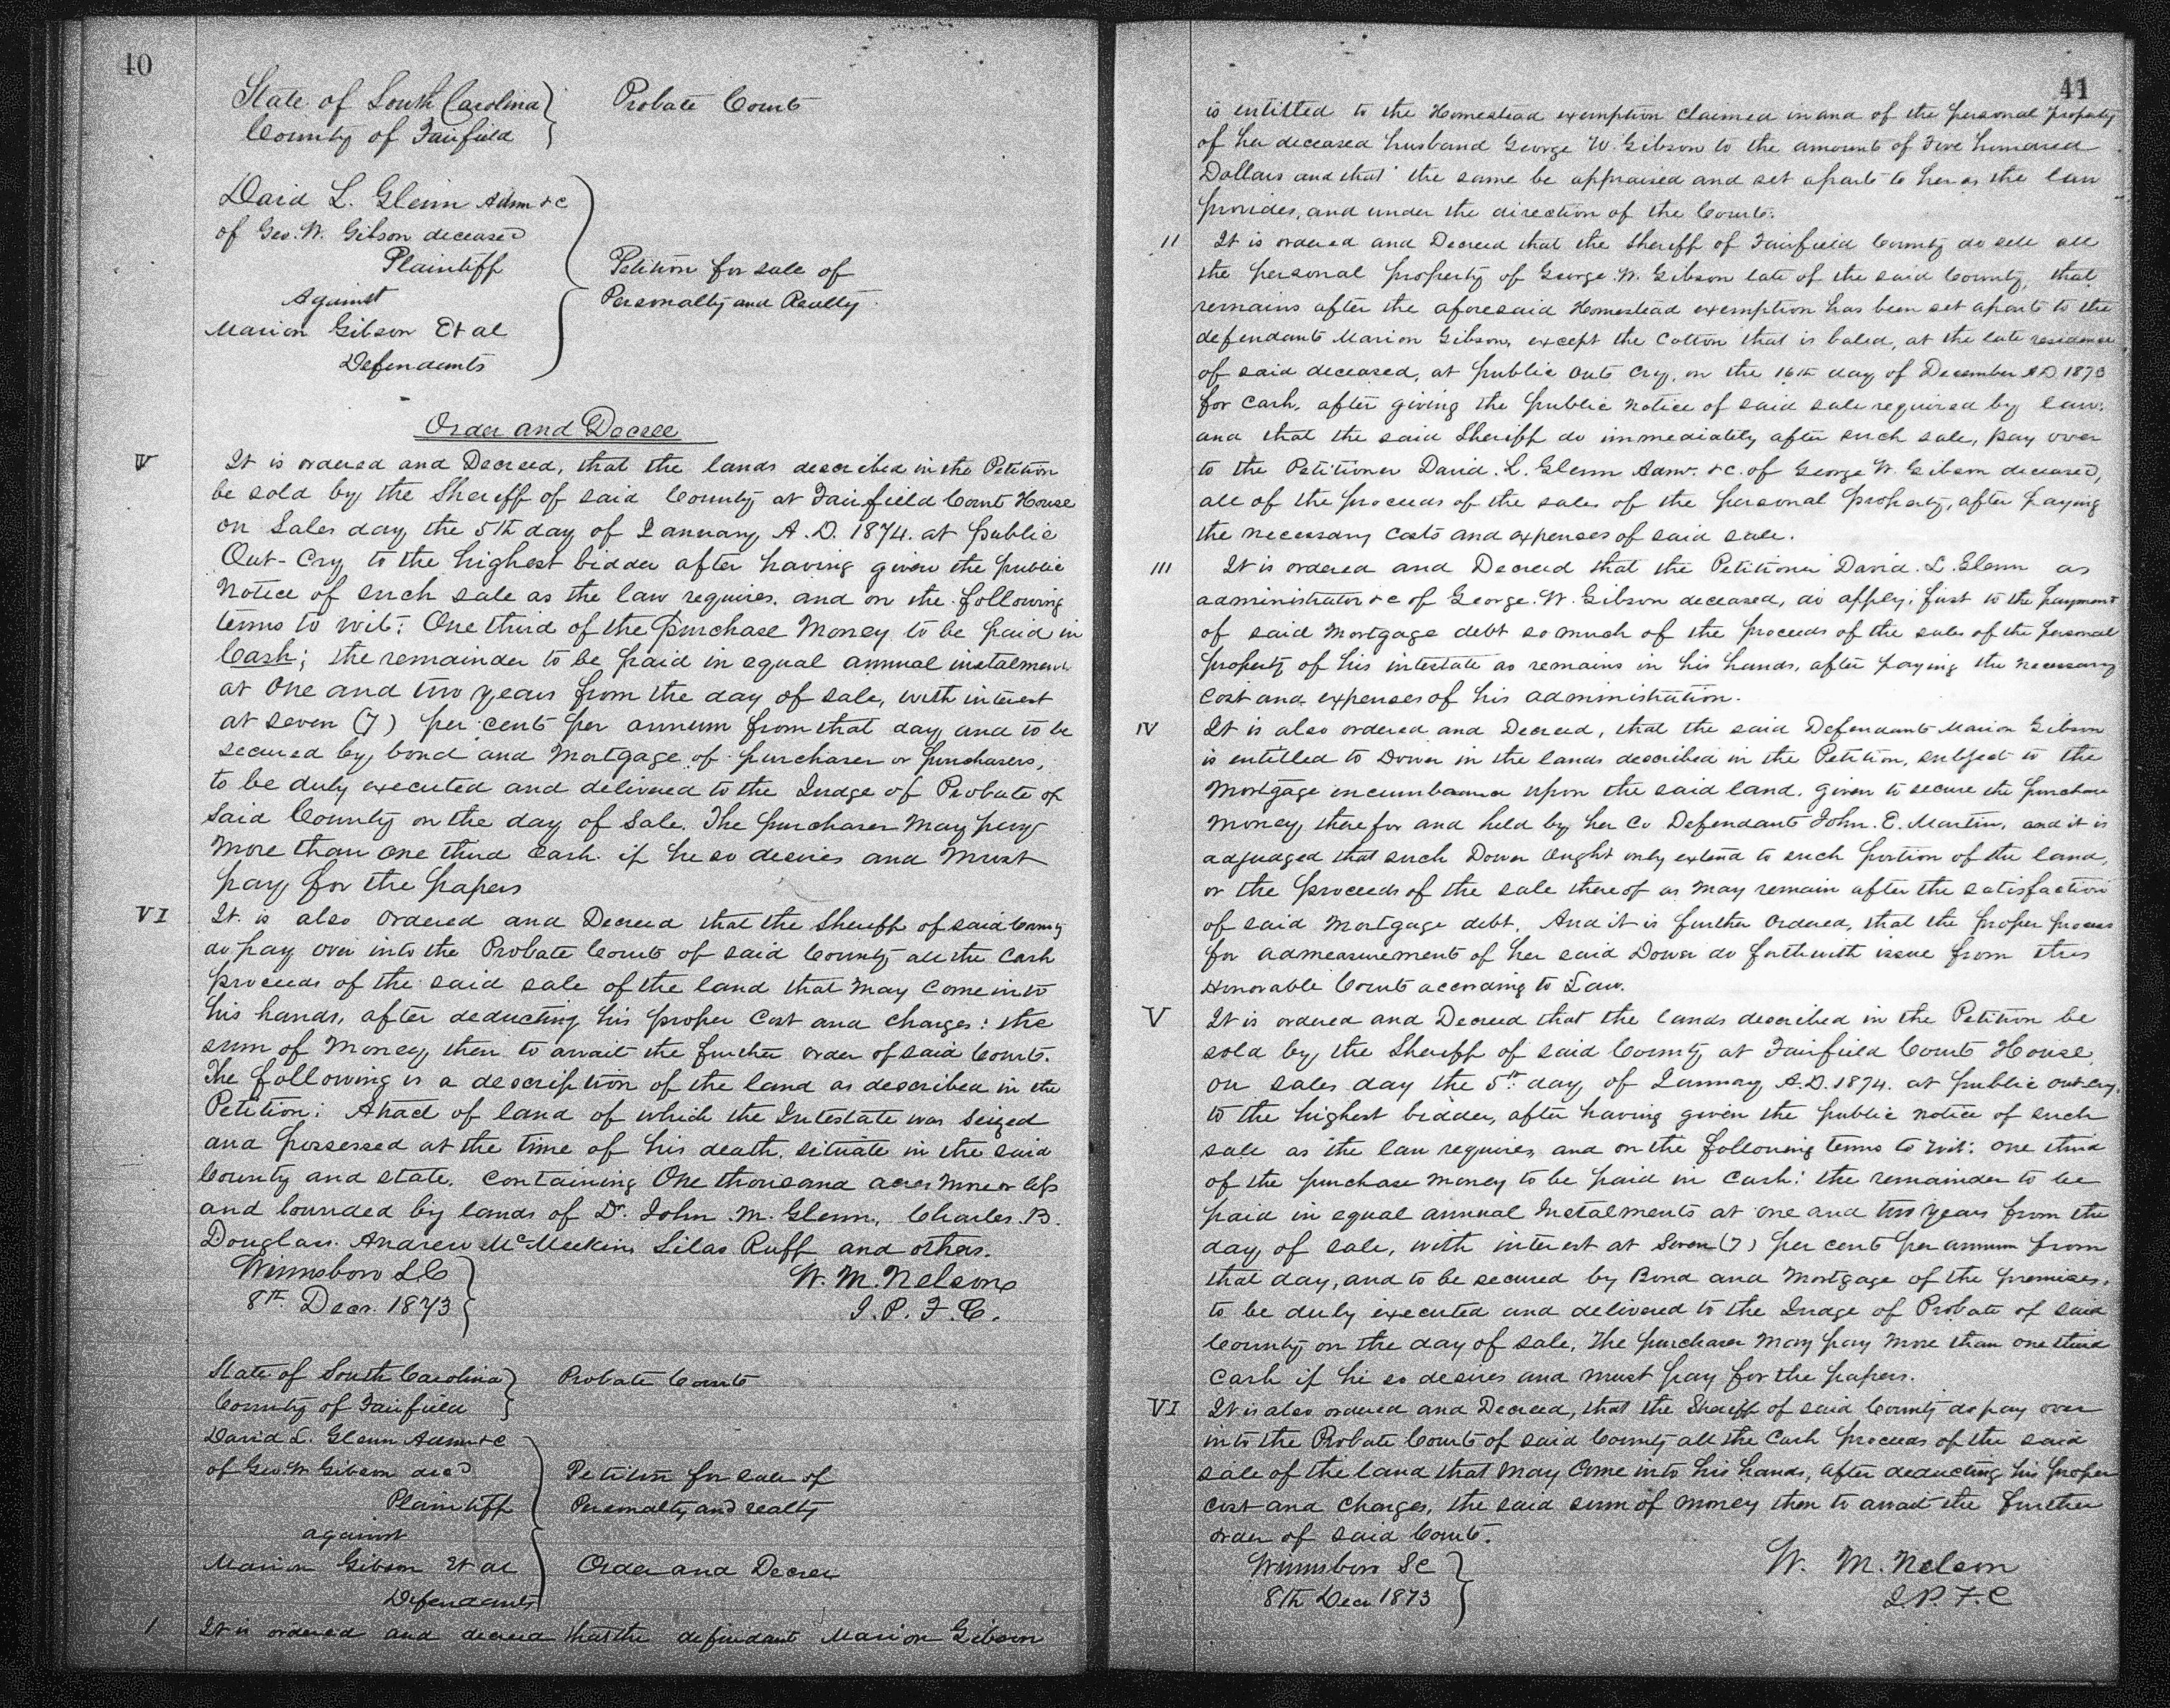 40
State of South Carolina } Probate Court
County of Fairfield
Daid L. Glenn Adm &c
of Geo. W. Gibson deceased
Plaintiff
Petition for sale of
Against
Personalty and Realty.
Marion Gibson Et al
Defendants
Order and Decree
V It is ordered and Decreed, that the lands described in the Petition
be sold by the Sheriff of said County at Fairfield Court House
on Sales day the 5th day of January A.D. 1874. at public
Out-Cry to the highest bidder after having given the public
Notice of such sale as the law requires. and on the following
terms to wit: One third of the Purchase Money to be paid in
Cash; the remainder to be paid in equal annual instalments
at One and two years from the day of sale, with interest
at seven (7) per cent per annum from that day and to be
secured by bond and Mortgage of purchaser or purchasers,
to be duly executed and delivered to the Judge of Probate of
Said County on the day of Sale. The purchaser May pay
More than one third Cash if he so desires and Must
pay for the papers
VI It is also Ordered and Decreed that the Sheriff of said County
do pay over into the Probate Court of said County all the Cash
proceeds of the said sale of the land that May Come into
his hands, after deducting his proper Cost and Charges: the
sum of Money then to await the further order of said Court.
The following is a description of the land as described in the
Petition: A tract of land of which the Intestate was Seized
and possessed at the time of his death, situate in the said
County and state. Containing One thousand acres More or less
and bounded by lands of Dr. John M. Glenn, Charles B.
Douglass. Andrew McMeekin, Silas Ruff and others.
Winnsboro S.C } W. M. Nelson
8th Decr. 1873 J. P. F. C.
State of South Carolina } Probate Court
County of Fairfield
David L. Glenn Adm &c
of Geo W Gibson decd
Petition for sale of
Plaintiff
Personalty and realty
against
Marion Gibson Et al
Order and Decree
Defendants
1 It is ordered and decreed that the defendant Marion Gibson
41
is entitled to the Homestead exemption Claimed in and of the personal property
of her deceased husband George W. Gibson to the amount of Five hundred
Dollars and that the same be appraised and set apart to her as the law
provides, and under the direction of the Court.
11 It is ordered and Decreed that the Sheriff of Fairfield County do sell all
the personal property of George W. Gibson late of the said County, that
remains after the aforesaid Homestead exemption has been set apart to the
defendant Marion Gibson, except the Cotton that is baled, at the late residence
of said deceased, at public out cry, on the 16th day of December A.D. 1873
for Cash. after giving the public notice of said sale required by law.
and that the said Sheriff do immediately after such sale, pay over
to the Petitioner David. L. Glenn Admr. &c. of George W. Gibson deceased,
all of the proceeds of the sales of the personal property, after paying
the necessary Costs and expenses of said sale.
111 It is ordered and Decreed that the Petitioner David. L. Glenn as
administrator &c of George. W. Gibson deceased, do apply; first to the payment
of said Mortgage debt so much of the proceeds of the sales of the personal
property of his intestate as remains in his hands, after paying the necessary
Cost and expenses of his administration.
IV It is also ordered and Decreed, that the said Defendant Marion Gibson
is entitled to Dower in the lands described in the Petition, subject to the
Mortgage incumbrance upon the said land, given to secure the purchase
Money therefor and held by her Co Defendant John. E. Martin, and it is
adjudged that such Dower ought only extend to such portion of the land,
or the proceeds of the sale thereof as May remain after the satisfaction
of said Mortgage debt. And it is further Ordered, that the proper process
for admeasurement of her said Dower do forthwith issue from this
Honorable Court according to Law.
V It is ordered and Decreed that the lands described in the Petition be
sold by the Sheriff of said County at Fairfield Court House
on sales day the 5th day of January A.D. 1874. at public outcry.
to the highest bidder, after having given the public notice of such
sale as the law requires, and on the following terms to wit: one third
of the purchase money to be paid in Cash: the remainder to be
paid in equal annual Instalments at one and two years from the
day of sale, with interest at Seven (7) per cent per annum from
that day, and to be secured by Bond and Mortgage of the premises,
to be duly executed and delivered to the Judge of Probate of said
County on the day of sale. The purchaser May pay More than one third
Cash if he so desires and must pay for the papers.
VI It is also ordered and Decreed, that the Sheriff of said County do pay over
into the Probate Court of said County all the Cash proceeds of the said
sale of the land that May Come into his hands, after deducting his proper
Cost and Charges, the said sum of Money then to await the further
order of said Court.
Winnsboro SC } W. M. Nelson
8th Decr 1873 J.P.F.C